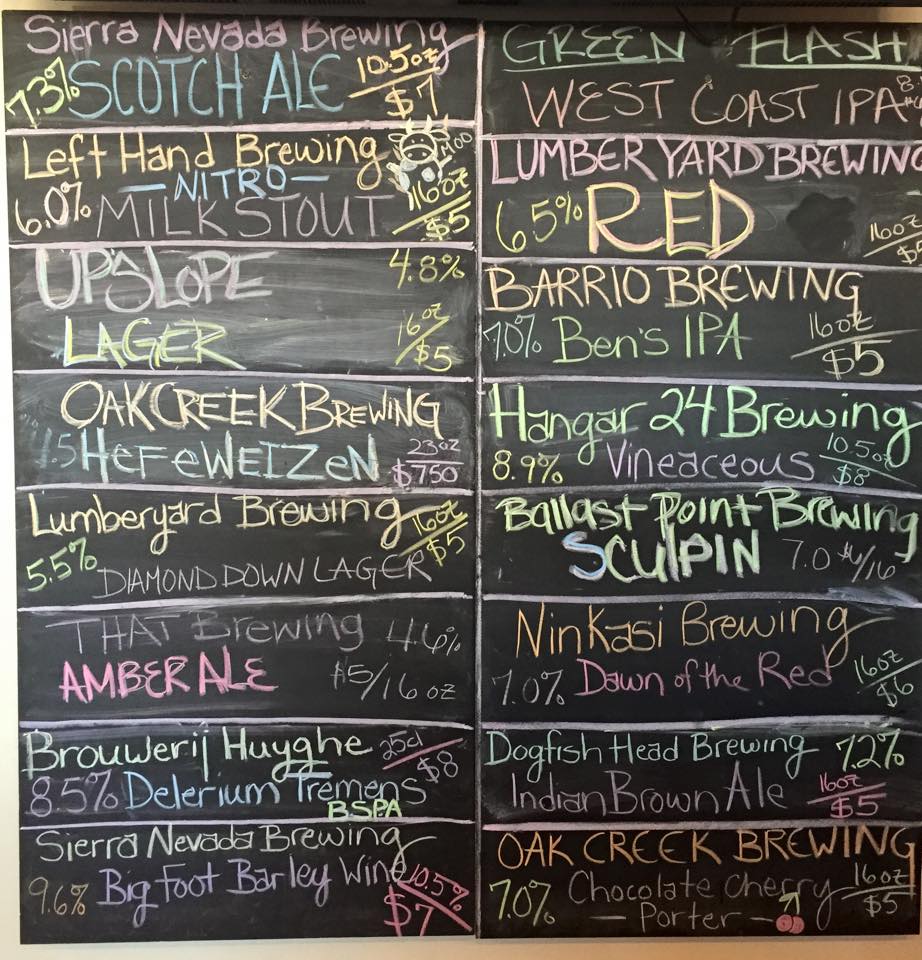 Sierra Nevada Brewing
7.3% SCOTCH ALE 10.5oz $7
Left Hand Brewing MOO
—NITRO—
6.0% MILK STOUT 16oz $5
UPSLOPE 4.8%
LAGER 16oz $5
OAK CREEK BREWING
HEFEWEIZEN 23oz $750
Lumberyard Brewing 16oz $5
5.5% DIAMOND DOWN LAGER
THAT Brewing 4.6%
AMBER ALE $5/16oz
Brouwerij Huyghe 25cl $8
8.5% Delerium Tremens
BSPA
Sierra Nevada Brewing
9.6% Bigfoot Barley Wine 10.5% $7
GREEN FLASH
WEST COAST IPA
LUMBER YARD BREWING
6.5% RED 16oz
BARRIO BREWING
7.0% Ben's IPA 16oz $5
Hangar 24 Brewing
8.9% Vineaceous 10.5oz $8
Ballast Point Brewing
SCULPIN 7.0 $6/16
Ninkasi Brewing
7.0% Dawn of the Red 16oz $6
Dogfish Head Brewing 7.2%
Indian Brown Ale 16oz $5
OAK CREEK BREWING
7.0% Chocolate Cherry 16oz $5
—Porter—